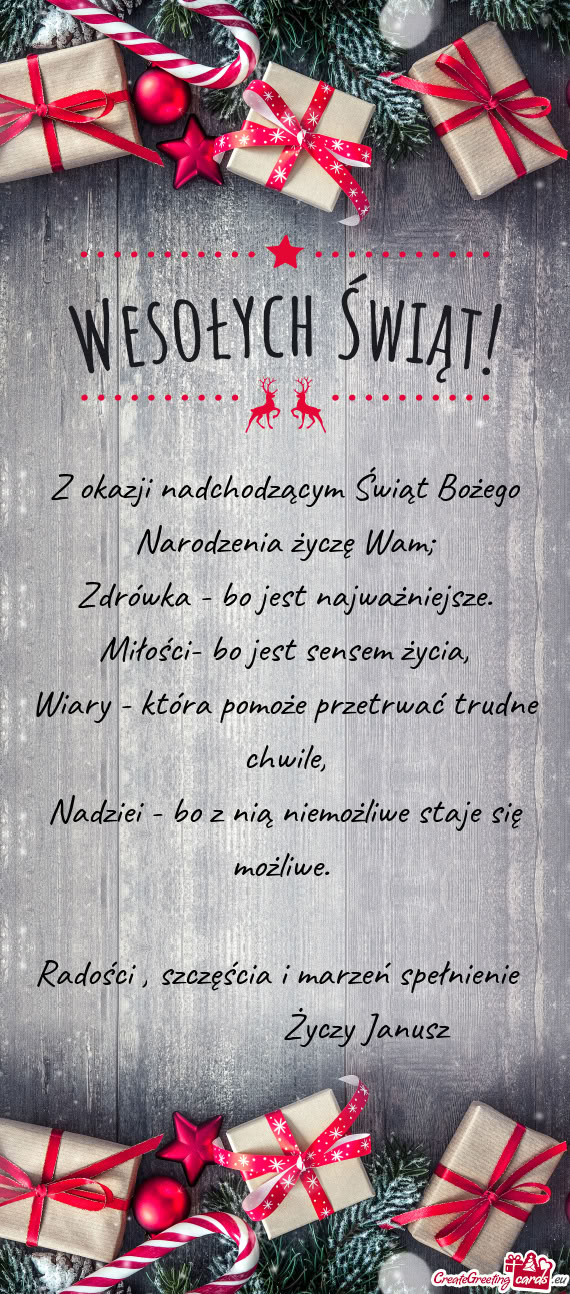 Wesołych Świąt!
Z okazji nadchodzącym Świąt Bożego
Narodzenia życzę Wam;
Zdrówka - bo jest najważniejsze.
Miłości- bo jest sensem życia,
Wiary - która pomoże przetrwać trudne
chwile,
Nadziei - bo z nią niemożliwe staje się
możliwe.
Radości , szczęścia i marzeń spełnienie
Życzy Janusz
CreateGreeting cards .eu